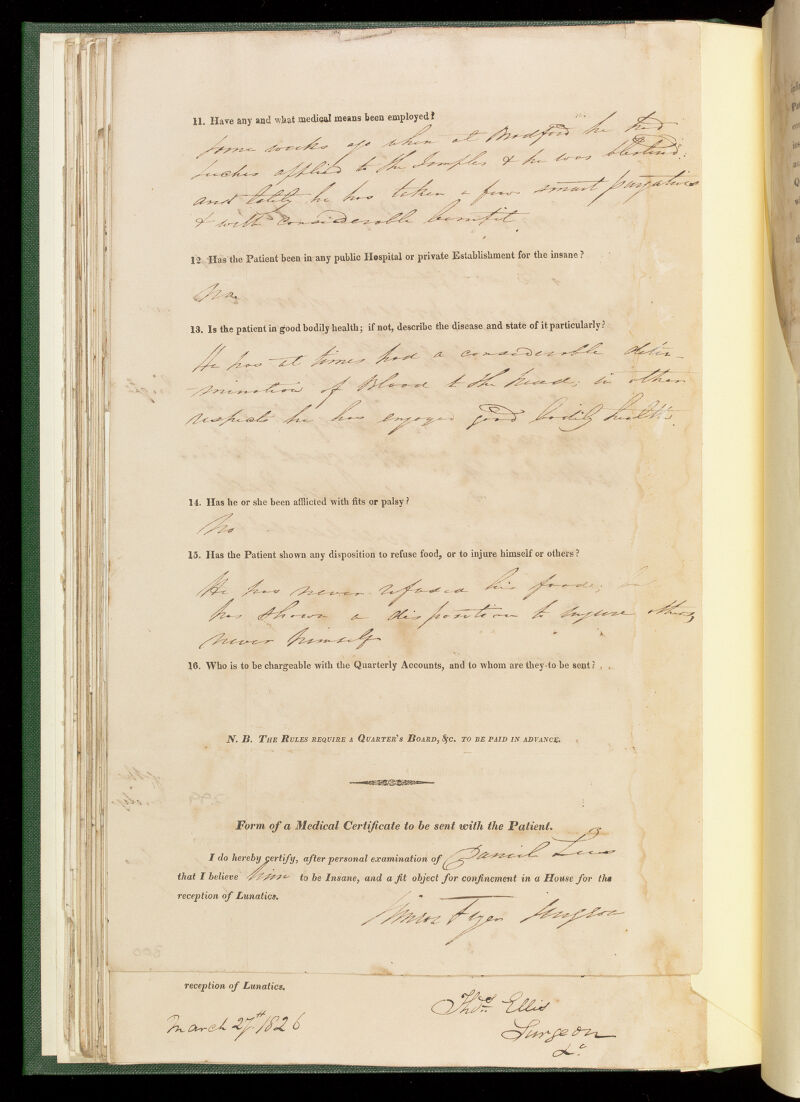 11. Have any and what medical means been employed?
Some weeks ago when at Bradford he had
Leeches applied to the Temples & he was blistered;
and lately he has taken a few smart purgatives
& with considerable benefit.
12 Has the Patient been in any public Hospital or private Establishment for the insane?
No.
13. Is the patient in good bodily health; if not, describe the disease and state of it particularly?
He has at times had a considerable deter-
mination of Blood to the head; in other
respects he has enjoyed good bodily health.
14. Has he or she been afflicted with fits or palsy?
No
15. Has the Patient shown any disposition to refuse food, or to injure himself or others?
He has never refused his foode; he
has shown a disposition to injure others,
never himself
16. Who is to be chargeable with the Quarterly Accounts, and to whom are they to be sent?
N. B. The Rules require a Quarter's Board, &c. to be paid in advance.
Form of a Medical Certificate to be sent with the Patient.
I do hereby certify, after personal examination of Daniel
that I believe him to be Insane, and a fit object for confinement in a House for the
reception of Lunatics.
Surgeon
reception of Lunatics.
Thos. Ellis
March 27th 1826
Surgeon